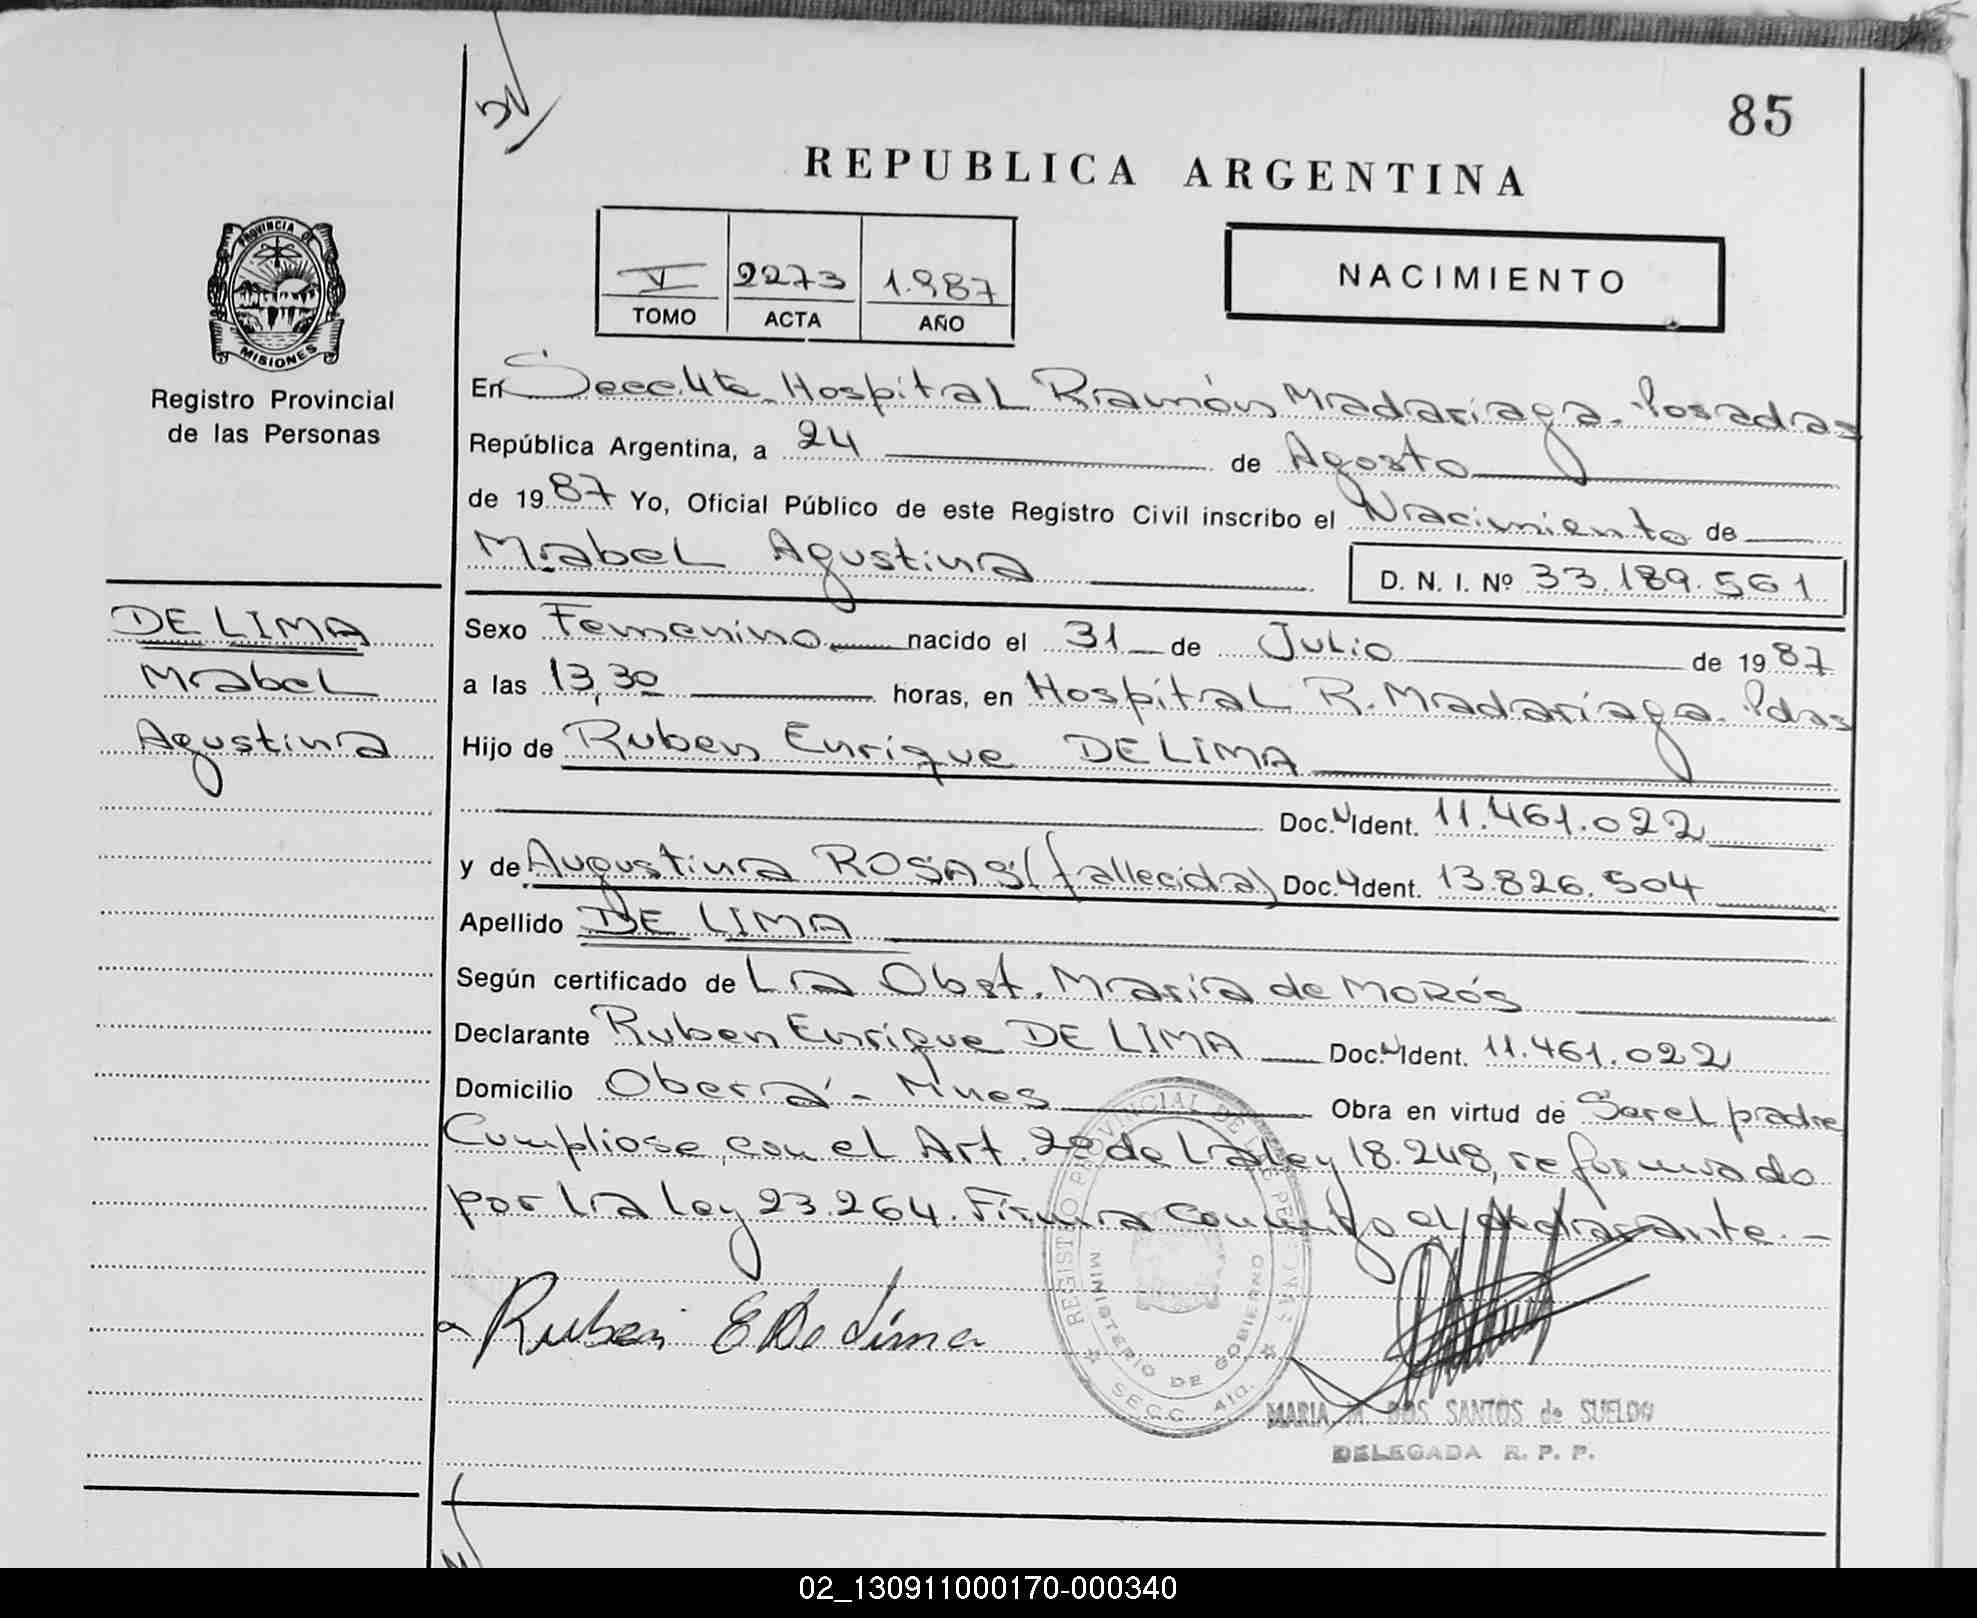 85
REPUBLICA ARGENTINA
PROVINCIA DE
MISIONES
Registro Provincial
de las Personas
V 2273 1.987
TOMO ACTA AÑO
NACIMIENTO
En Secc. 4ta. Hospital Ramón Madariaga - Posadas
República Argentina, a 24 de Agosto
de 1987 Yo, Oficial Público de este Registro Civil inscribo el Nacimiento de
Mabel Agustina
D. N. I. Nº 33.189.561
DE LIMA
Mabel
Agustina
Sexo Femenino nacido el 31 de Julio de 1987
a las 13,30 horas, en Hospital R. Madariaga. Pdas
Hijo de Ruben Enrique DE LIMA
Doc. Ident. 11.461.022
y de Augustina ROSAS (fallecida) Doc. Ident. 13.826.504
Apellido DE LIMA
Según certificado de La Obst. Maria de MORÓS
Declarante Ruben Enrique DE LIMA Doc. Ident. 11.461.022
Domicilio Oberá - Mnes Obra en virtud de Ser el padre
Cumpliose con el Art. 2º de la Ley 18.248, reformado
por la Ley 23.264. Firma conmigo el declarante. -
Ruben E De Lima
REGISTRO PROVINCIAL DE LAS PERSONAS
MINISTERIO DE GOBIERNO
SECC. 4ta.
MARIA M. DOS SANTOS de SUELDO
DELEGADA R. P. P.
02_130911000170-000340